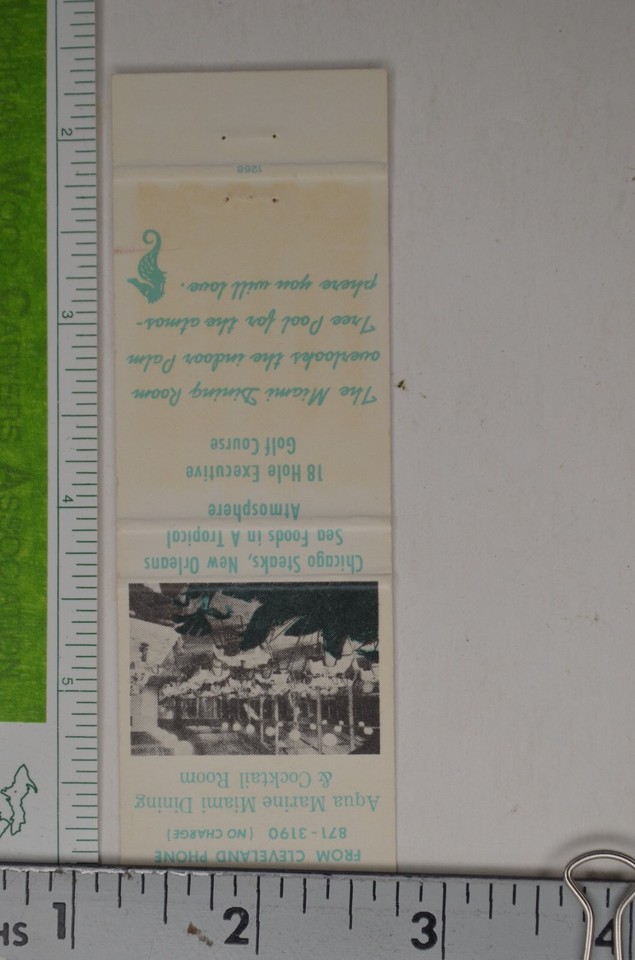 FROM CLEVELAND PHONE
871-3190 (NO CHARGE)
Aqua Marine Miami Dining
& Cocktail Room
Chicago Steaks, New Orleans
Sea Foods in A Tropical
Atmosphere
18 Hole Executive
Golf Course
The Miami Dining Room
overlooks the indoor Palm
Tree Pool for the atmos-
phere you will love.
1268
2
3
4
5
1
2
3
4
SH
WOOD CARVERS ASSOCIATION